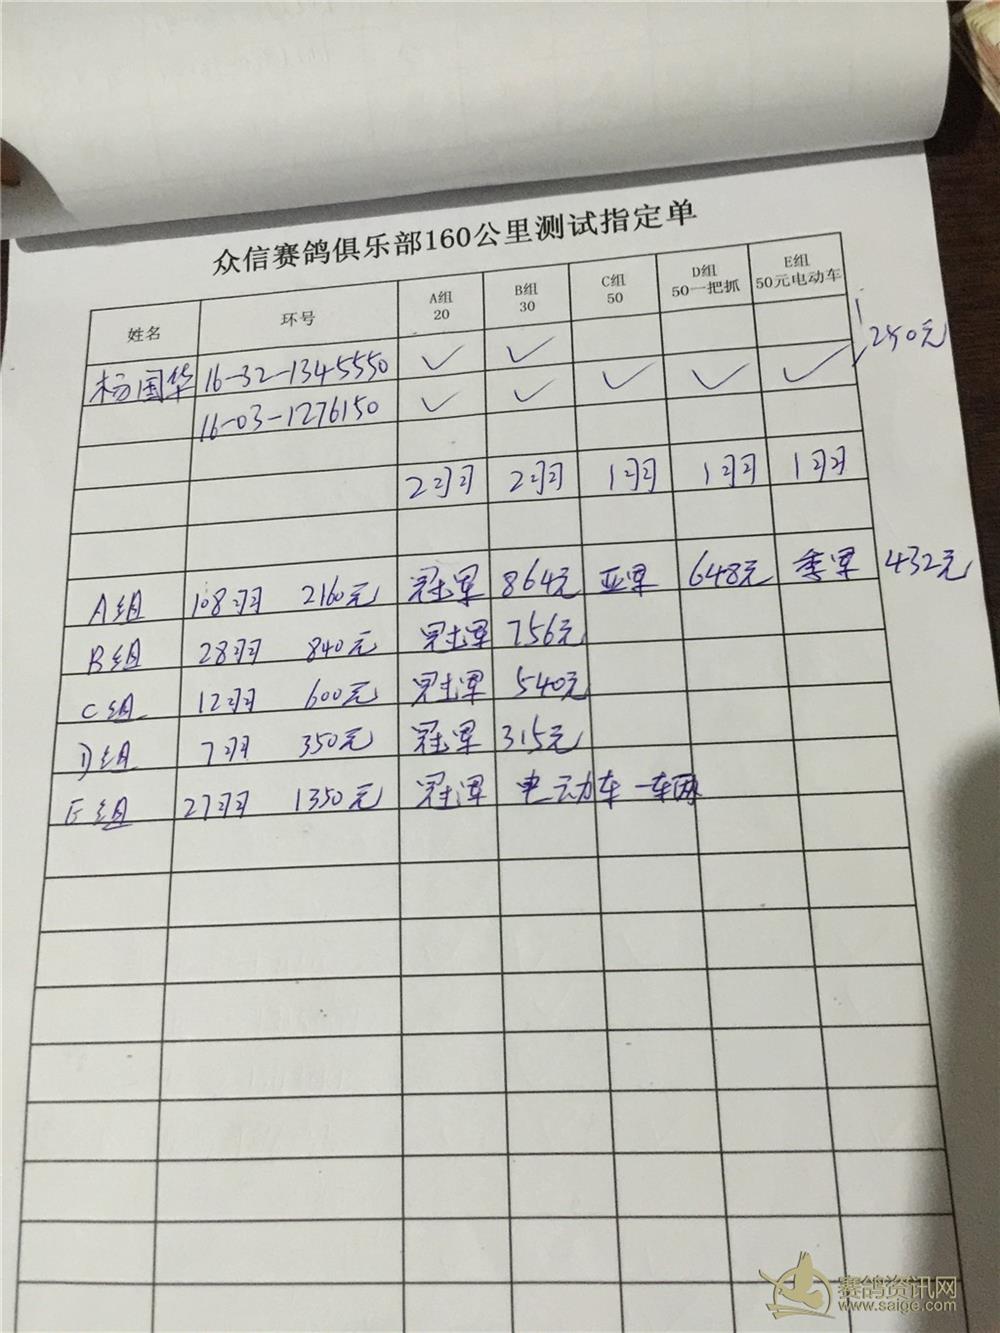 众信赛鸽俱乐部160公里测试指定单
姓名 环号 A组 20 B组 30 C组 50 D组 50一把抓 E组 50元电动车
杨国华 16-32-1345550 ✓ ✓ 250元
16-03-1276150 ✓ ✓ ✓ ✓ ✓
2羽 2羽 1羽 1羽 1羽
A组 108羽 2160元 冠军 864元 亚军 648元 季军 432元
B组 28羽 840元 冠军 756元
C组 12羽 600元 冠军 540元
D组 7羽 350元 冠军 315元
E组 27羽 1350元 冠军 电动车一车辆
赛鸽资讯网
www.saige.com